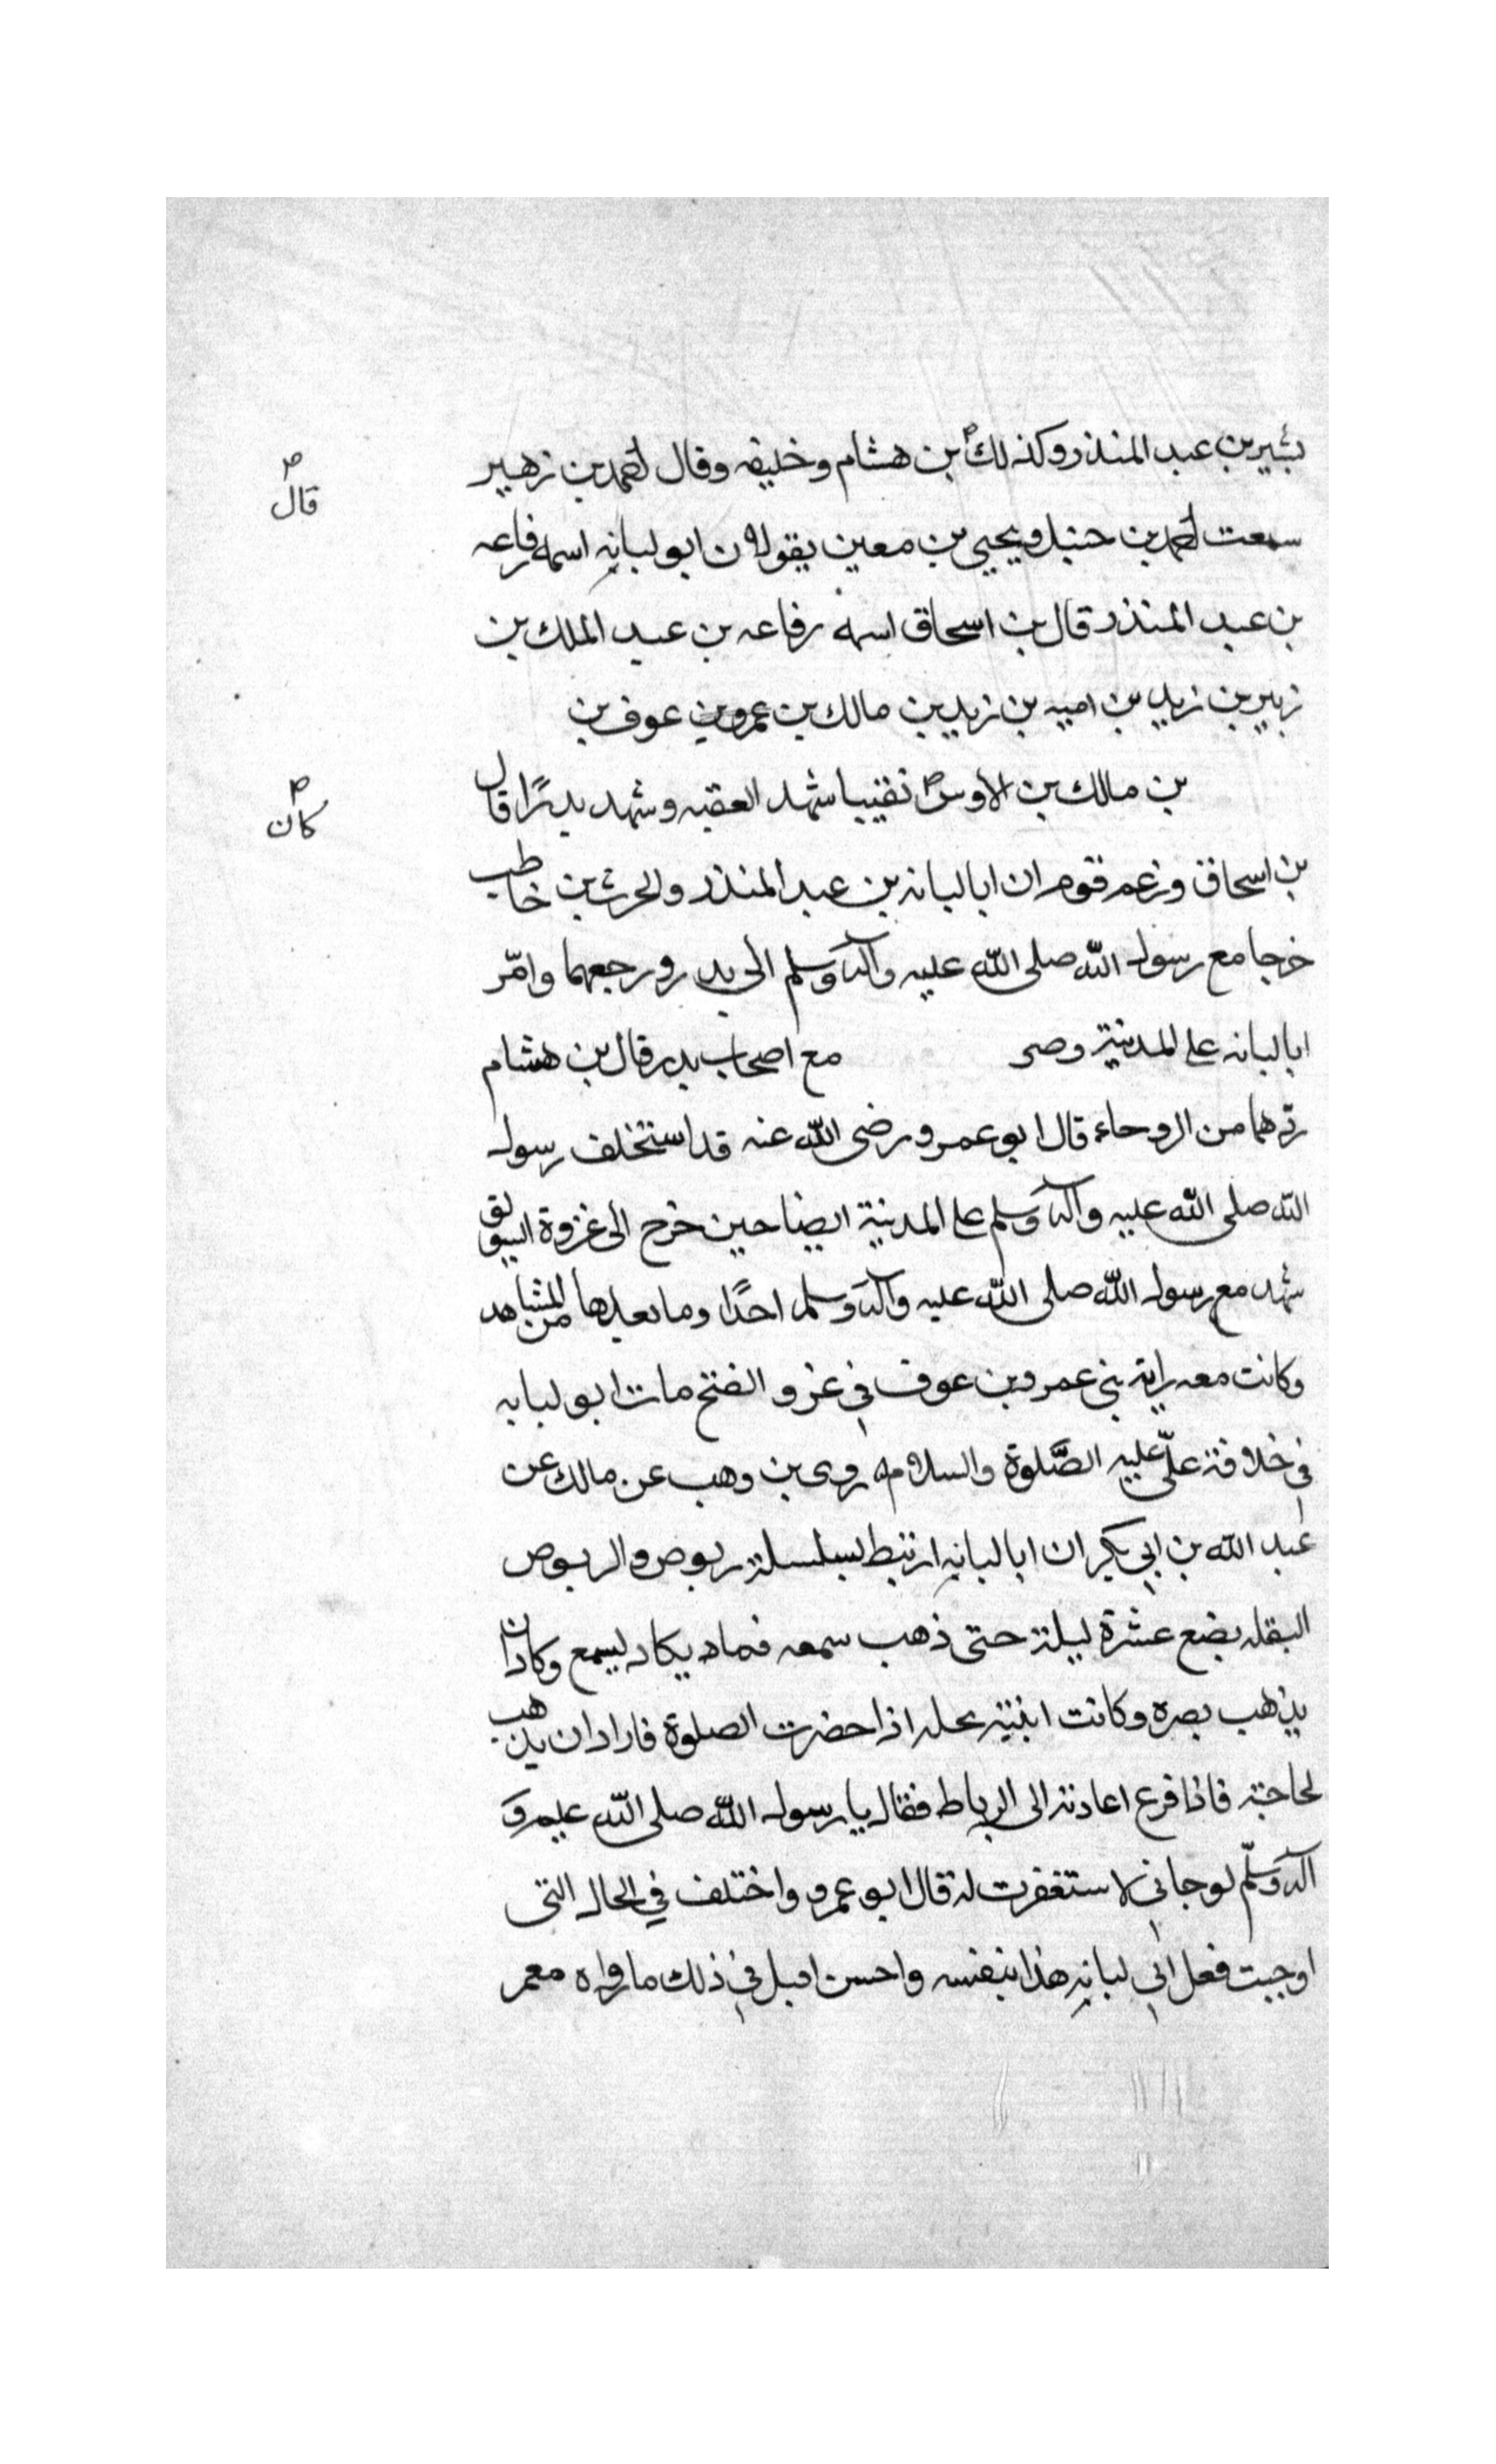 بشير بن عبد المنذر وكذلك بن هشام وخليفه وقال احمد بن زهير
قال
سمعت احمد بن حنبل ويحيى بن معين يقولان ابو لبانه اسمه رفاعه
بن عبد المنذر قال بن اسحاق اسمه رفاعه بن عبد الملك بن
زبير بن زيد بن اميه بن زيد بن مالك بن عمرو بن عوف بن
بن مالك بن الاوس نقيبا شهد العقبه وشهد بدرًا قال
كان
بن اسحاق وزعم قوم ان ابا لبانه بن عبد المنذر والحرث بن خاطب
خرجا مع رسول الله صلى الله عليه وآله وسلم الى بدر ورجعهما وامّر
ابا لبانه على المدينة وصر مع اصحاب بدر قال بن هشام
ردهما من الروحاء قال ابو عمرو رضى الله عنه قد استخلف رسول
الله صلى الله عليه وآله وسلم على المدينة ايضا حين خرج الى غزوة السويق
شهد مع رسول الله صلى الله عليه وآله وسلم احدًا وما بعدها من المشاهد
وكانت معه راية بنى عمرو بن عوف في غزو الفتح مات ابو لبابه
في خلافة علىّ عليه الصَّلوة والسلام روى بن وهب عن مالك عن
عبد الله بن ابي بكر ان ابا لبانه ارتبط بسلسلة ربوض والربوض
الثقله بضع عشرة ليلة حتى ذهب سمعه فماد يكاد يسمع وكاد ان
يذهب بصره وكانت ابنته تحله اذا حضرت الصلوة فاراد ان يذهب
لحاجة فاذا فرغ اعادته الى الرباط فقال يا رسول الله صلى الله عليه و
آله وسلّم لو جاني لاستغفرت له قال ابو عمرو واختلف في الحال التى
اوجبت فعل ابي لبانه هذا بنفسه واحسن اقبل في ذلك ما رواه معمر